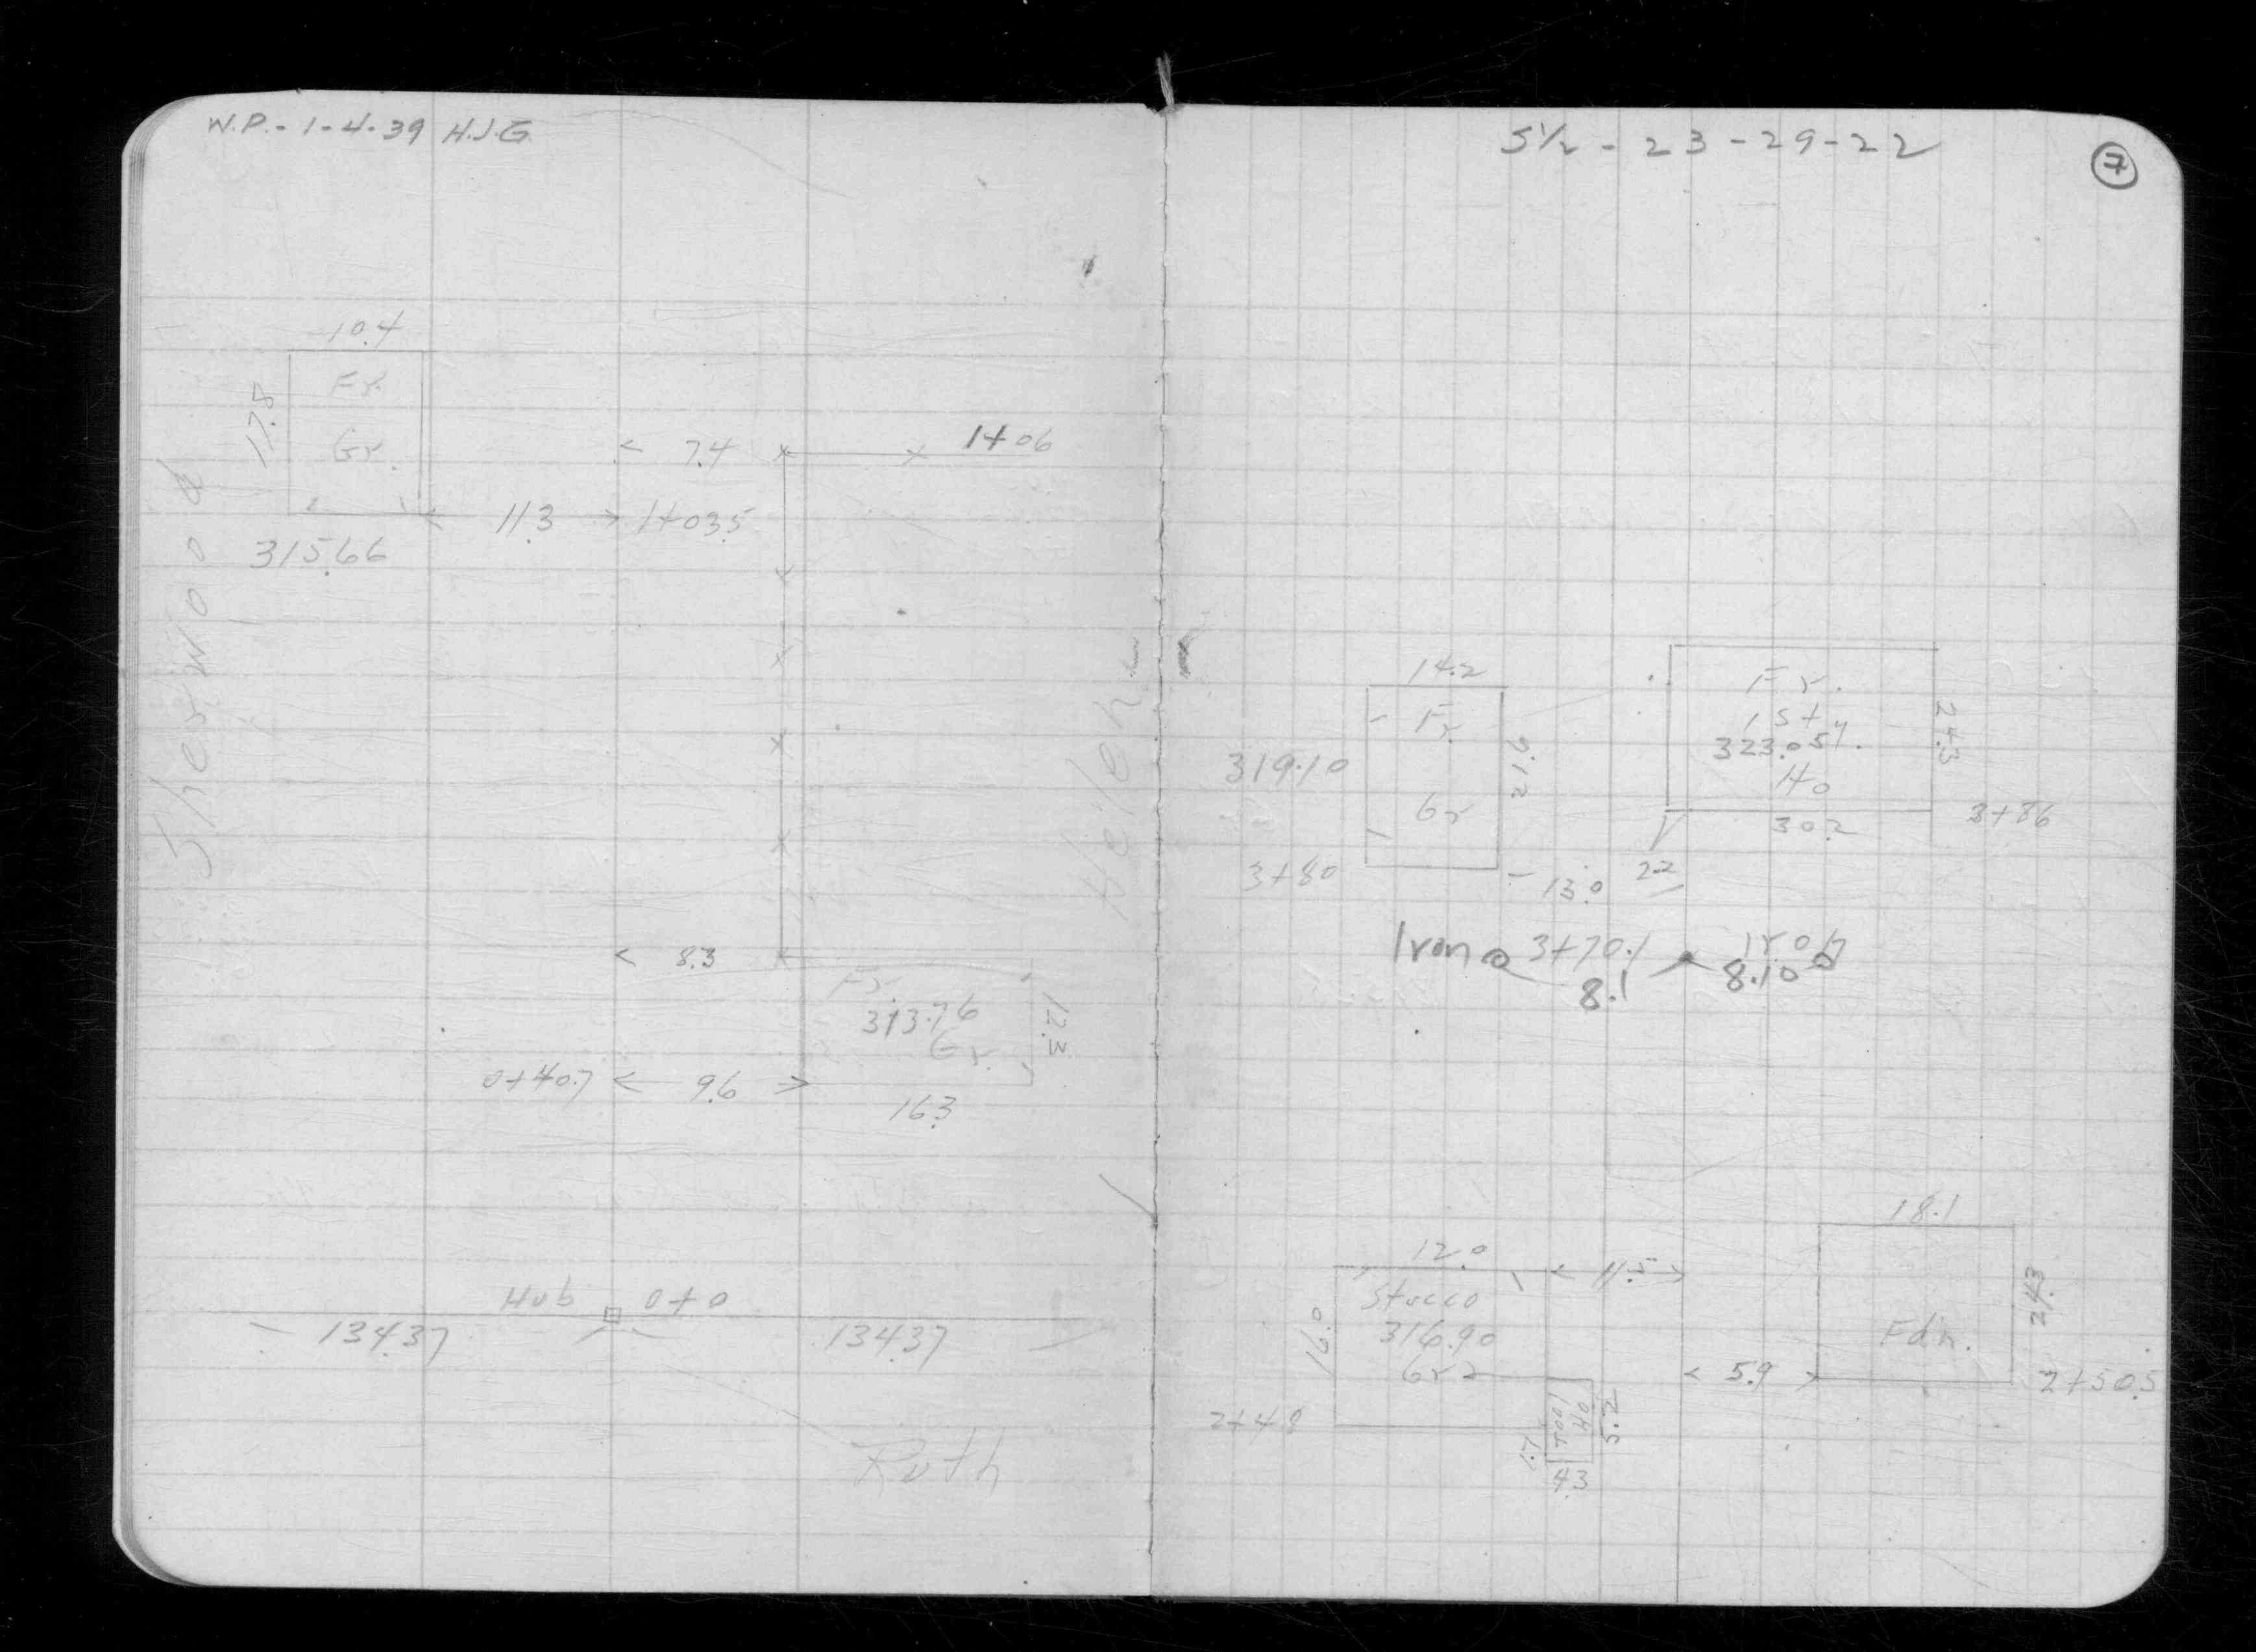 W.P. - 1-4-39 H.J.G.
10.4
Fr.
Gr.
17.8
7.4
1+06
11.3
1+03.5
315.66
Sherwood
8.3
Fr.
313.76
Gr.
12.3
0+40.7
9.6
16.3
Hub 0+0
134.37
134.37
Ruth
S½ - 23-29-22
7
14.2
Fr
Gr
319.10
21.9
3+80
13.0
2.2
Fr.
1 sty.
323.05
Ho
24.3
30.2
3+86
Iron
3+70.1
Iron
8.1
8.10
12.0
Stucco
316.90
Gr
16.0
11.5
2+40
Tool
Ho
5.2
1.7
4.3
18.1
Fdn.
24.3
5.9
2+50.5